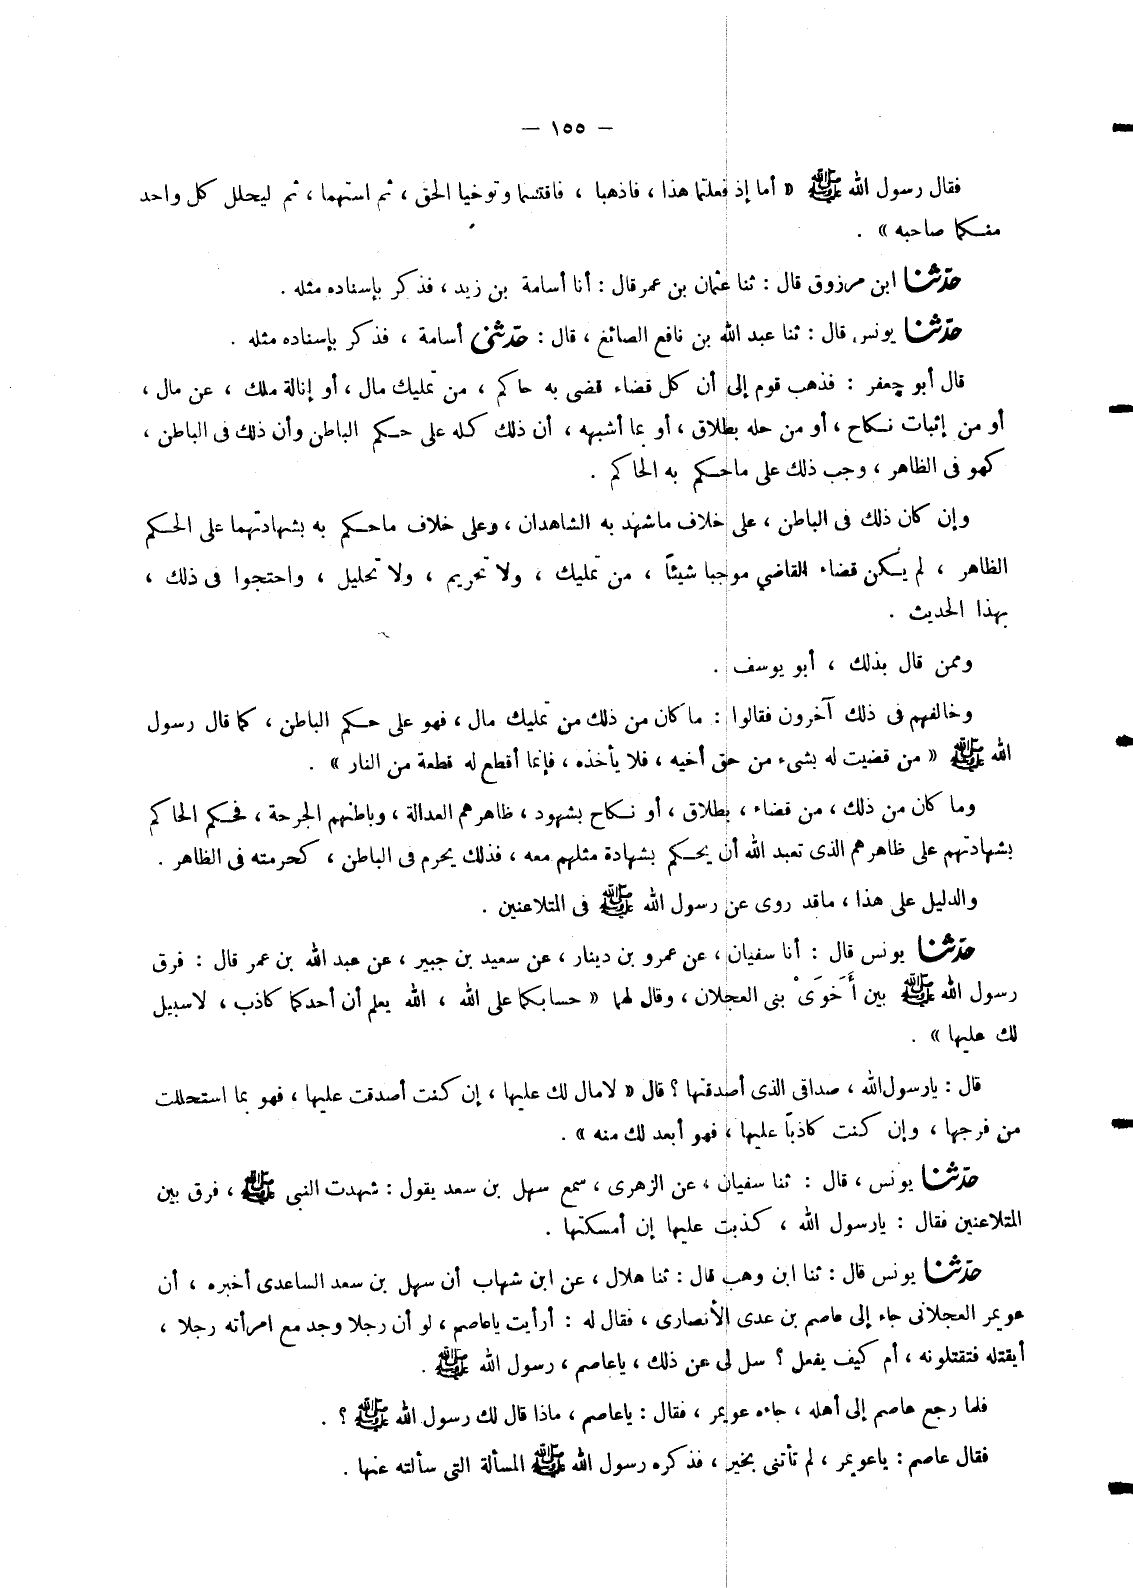 — ١٥٥ —
فقال رسول الله ﷺ « أما إذ فعلتما هذا ، فاذهبا ، فاقتسما وتوخيا الحق ، ثم استهما ، ثم ليحلل كل واحد
منكما صاحبه » .
حدّثنا ابن مرزوق قال : ثنا عثمان بن عمر قال : أنا أسامة بن زيد ، فذكر بإسناده مثله .
حدّثنا يونس قال : ثنا عبد الله بن نافع الصائغ ، قال : حدّثنى أسامة ، فذكر بإسناده مثله .
قال أبو جعفر : فذهب قوم إلى أن كل قضاء قضى به حاكم ، من تمليك مال ، أو إزالة ملك ، عن مال ،
أو من إثبات نكاح ، أو من حله بطلاق ، أو بما أشبهه ، أن ذلك كله على حكم الباطن وأن ذلك فى الباطن ،
كهو فى الظاهر ، وجب ذلك على ماحكم به الحاكم .
وإن كان ذلك فى الباطن ، على خلاف ماشهد به الشاهدان ، وعلى خلاف ماحكم به بشهادتهما على الحكم
الظاهر ، لم يكن قضاء القاضي موجبا شيئاً ، من تمليك ، ولا تحريم ، ولا تحليل ، واحتجوا فى ذلك ،
بهذا الحديث .
وممن قال بذلك ، أبو يوسف .
وخالفهم فى ذلك آخرون فقالوا : ماكان من ذلك من تمليك مال ، فهو على حكم الباطن ، كما قال رسول
الله ﷺ « من قضيت له بشىء من حق أخيه ، فلا يأخذه ، فإنما أقطع له قطعة من النار » .
وما كان من ذلك ، من قضاء ، بطلاق ، أو نكاح بشهود ، ظاهرهم العدالة ، وباطنهم الجرحة ، فحكم الحاكم
بشهادتهم على ظاهرهم الذى تعبد الله أن يحكم بشهادة مثلهم معه ، فذلك يحرم فى الباطن ، كحرمته فى الظاهر .
والدليل على هذا ، ماقد روى عن رسول الله ﷺ فى المتلاعنين .
حدّثنا يونس قال : أنا سفيان ، عن عمرو بن دينار ، عن سعيد بن جبير ، عن عبد الله بن عمر قال : فرق
رسول الله ﷺ بين أَخَوَىْ بنى العجلان ، وقال لهما « حسابكما على الله ، الله يعلم أن أحدكما كاذب ، لاسبيل
لك عليها » .
قال : يارسول الله ، صداقى الذى أصدقتها ؟ قال « لامال لك عليها ، إن كنت أصدقت عليها ، فهو بما استحللت
من فرجها ، وإن كنت كاذباً عليها ، فهو أبعد لك منه » .
حدّثنا يونس ، قال : ثنا سفيان ، عن الزهرى ، سمع سهل بن سعد يقول : شهدت النبى ﷺ ، فرق بين
المتلاعنين فقال : يارسول الله ، كذبت عليها إن أمسكتها .
حدّثنا يونس قال : ثنا ابن وهب قال : ثنا هلال ، عن ابن شهاب أن سهل بن سعد الساعدى أخبره ، أن
عويمر العجلانى جاء إلى عاصم بن عدى الأنصارى ، فقال له : أرأيت ياعاصم ، لو أن رجلا وجد مع امرأته رجلا ،
أيقتله فتقتلونه ، أم كيف يفعل ؟ سل لى عن ذلك ، ياعاصم ، رسول الله ﷺ .
فلما رجع عاصم إلى أهله ، جاءه عويمر ، فقال : ياعاصم ، ماذا قال لك رسول الله ﷺ ؟ .
فقال عاصم : ياعويمر ، لم تأتنى بخير ، فذكره رسول الله ﷺ المسألة التى سألته عنها .